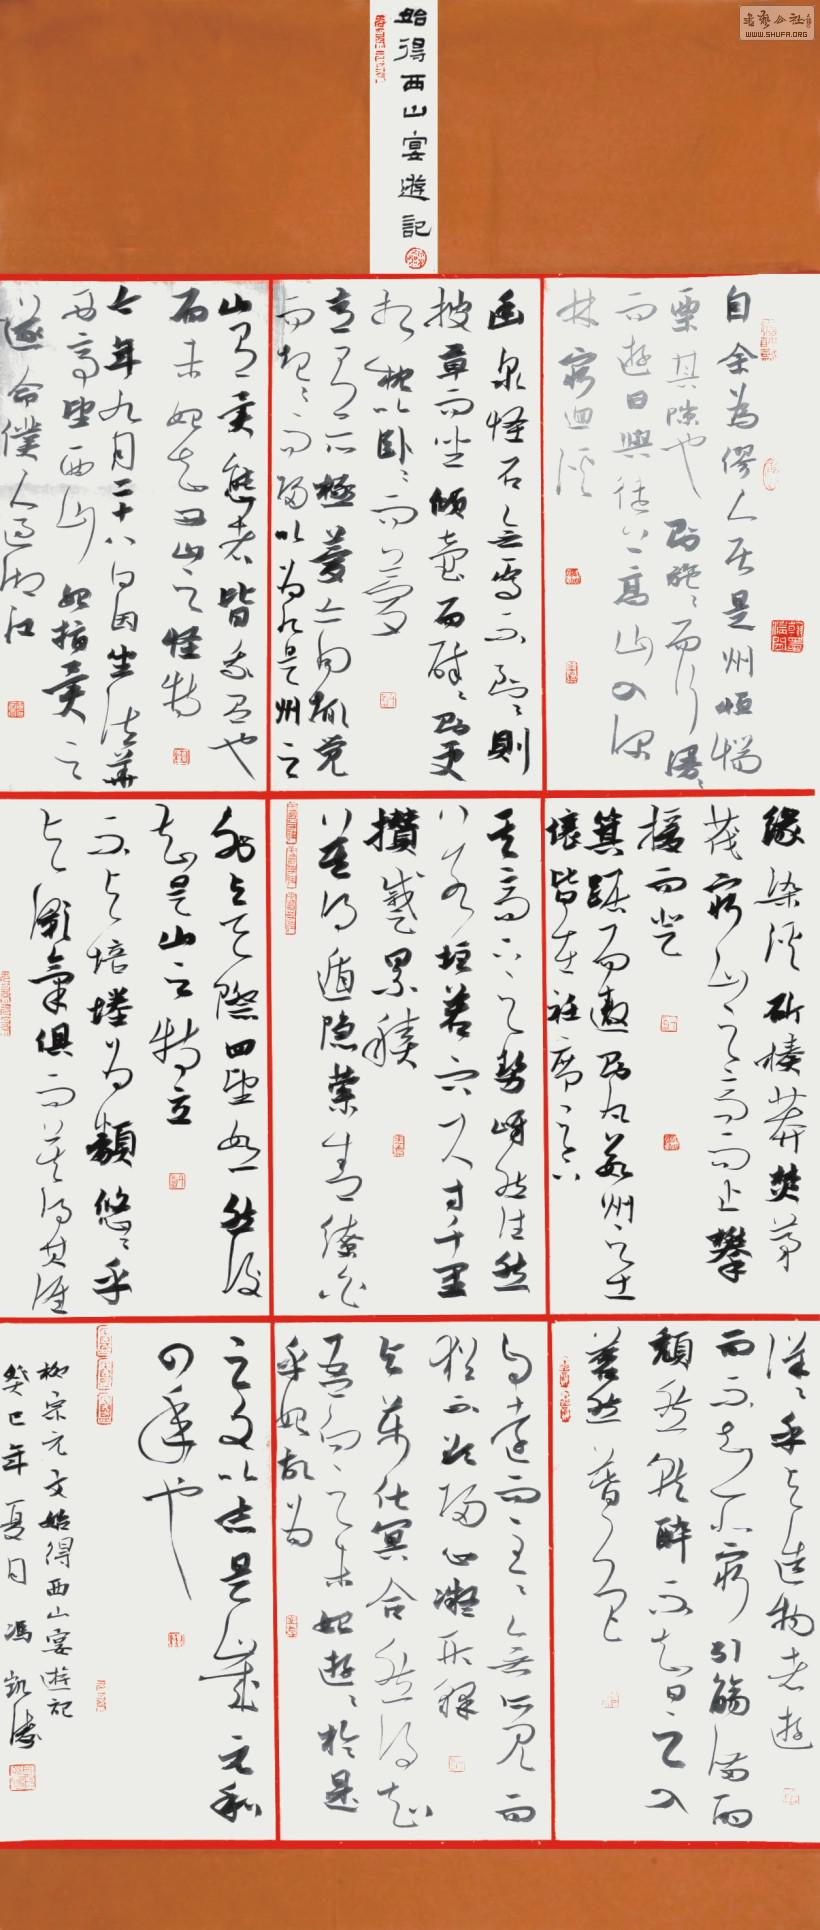 書藝公社
WWW.SHUFA.ORG
始得西山宴遊記
自余為僇人居是州恒惴
栗其隙也則施〻而行漫〻
而遊日與徒上高山入深
林窮迴溪
幽泉怪石無遠不到〻則
披草而坐傾壺而醉〻則更
相枕以臥〻而夢
意有所極夢亦同趣覺
而起〻而歸以為凡是州之
山有異態者皆我有也
而未始知西山之怪特
今年九月二十八日因坐法華
西亭望西山始指異之
遂命僕人過湘江
緣染溪斫榛莽焚茅
茷窮山之高而止攀
援而登
箕踞而遨則凡數州之土
壤皆在衽席之下
其高下之勢岈然洼然
若垤若穴尺寸千里
攢蹙累積
莫得遁隱縈青繚白
外與天際四望如一然後
知是山之特立
不與培塿為類悠〻乎
與灝氣俱而莫得其涯
洋〻乎與造物者遊
而不知其所窮引觴滿酌
頹然就醉不知日之入
蒼然暮色
自遠而至〻無所見而
猶不欲歸心凝形釋
與萬化冥合然後知
吾向之未始遊〻於是
乎始故為
之文以志是歲元和
四年也
柳宗元文始得西山宴遊記
癸巳年夏日馮凱